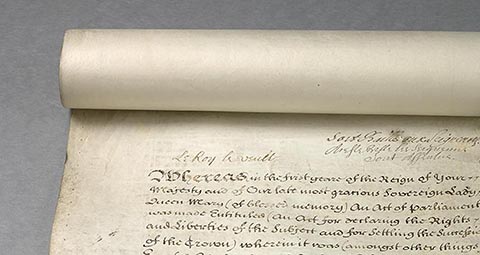 Soit Baillé aux Seigneurs
Le Roy le veult
Whereas in the first yeare of the Reign of Your
Majesty and of Our late most gracious Sovereign Lady
Queen Mary (of blessed memory) An Act of Parliament
was made Entituled (An Act for declaring the Rights
and Liberties of the Subject and for Setling the Succession
of the Crown) wherein it was (amongst other things